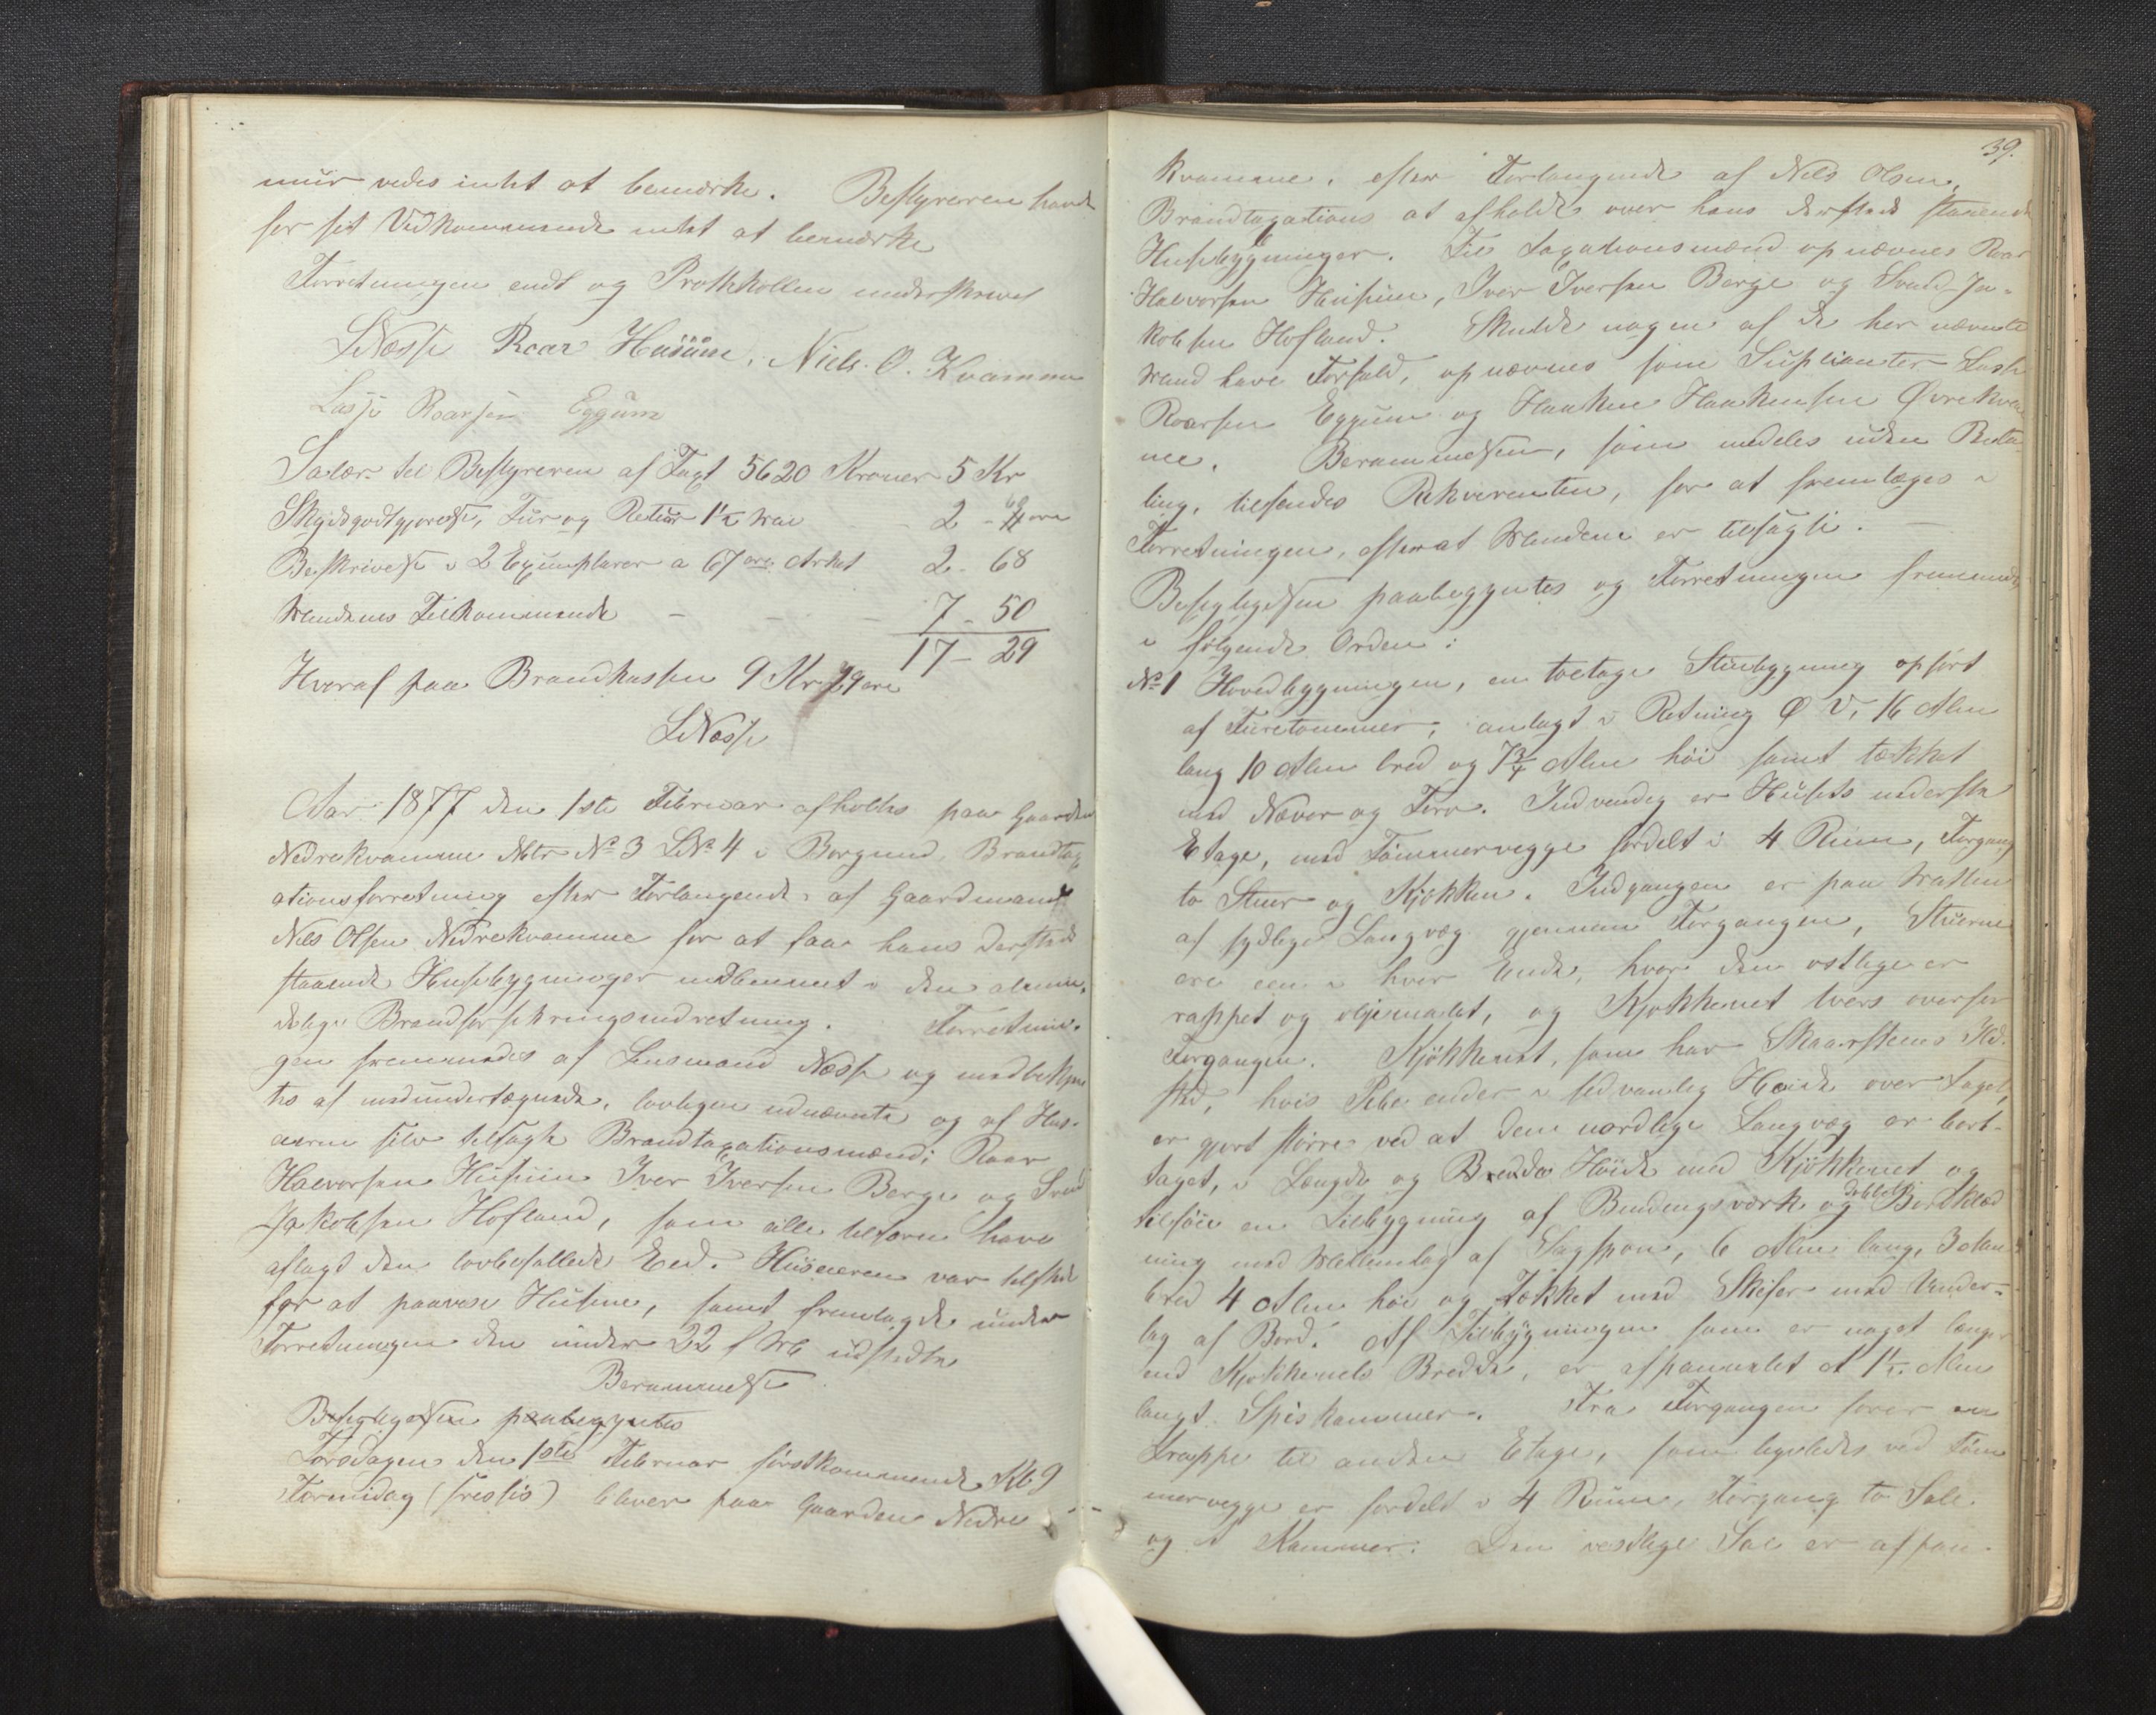 mur vedes intet at bemærke. Bestyreren havde
for sit Vedkommende intet at bemærke
Forretningen endt og Prothkollen underskrevet
LNæsse Roar Husum, Niels. O. Kvamme
Lasse Roarsen Eggum
Salær til Bestyreren af Taxt 5620 Kroner 5 Kr
Skydsgodtgjørelse, Tur og Retur 1½ Mil 2 -
Beskrivelse i 2 Exemplarer a 67 øre Arket 2 - 68
Mændenes Tilkommende - - - 7 - 50
17 - 29
Hvoraf paa Brandkassen 9 Kr 79 øre
LNæsse
Aar 1877 den 1ste Februar afholtes paa Gaarden
Nedrekvamme Mtr No 3 LNo 4 i Borgund, Brandtax
ationsforretning efter Forlangende af Gaardmand
Nils Olsen Nedrekvamme for at faa hans dersteds
staaende Husebygninger indlemmet i den almin,
delige Brandforsikringsindretning. Forretnin.
gen fremmedes af Lensmand Næsse og medbekræf
tes af medundertegnede, lovligen udnævnte og af Hus.
eieren selv tilsagte Brandtaxationsmænd: Roar
Halvorsen Husum Iver Iversen Berge og Svend
Jakobsen Hofland, som alle tilforn have
aflagt den lovbefallede Eed. Huseieren var tilstede
for at paavise Husene, samt fremlagde under
Forretningen den under 22 f M udstedte
Berammelse
Besigtigelsen paabegyntes
Torsdagen den 1ste Februar førstkommende Kl 9
Formidag (præsis) bliver paa Gaarden Nedre
39.
Kvamme, efter Forlangende af Nils Olsen,
Brandtaxations at afholdes over hans dersteds staaende
Husebygninger. Til Taxationsmænd opnævnes Roar
Halvorsen Husum, Iver Iversen Berge og Svend Ja-
kobsen Hofland. Skulde nogen af de her nævnte
Mænd have Forfald, opnævnes som Suplianter Lasse
Roarsen Eggum og Haaken Haakensen Øvrekvam
me. Berammelsen, som meddeles uden Beta
ling, tilsendes Rekvirenten, for at fremlægges i
Forretningen, efterat Mændene er tilsagte. —
Besigtigelsen paabegyntes og Forretningen fremmedes
i følgende Orden:
No 1 Hovedbygningen, en toetages Stuebygning opført
af Furetømmer, anlagt i Retning Ø V, 16 Alen
lang 10 Alen bred og 7¾ Alen høi samt tækket
med Næver og Torv. Indvendig er Husets nederste
Etage, med Tømmervægge fordelt i 4 Rum, Forgang
to Stuer og Kjøkken. Indgangen er paa Midten
af sydlige Langvæg gjennem Forgangen, Stuerne
ere een i hver Ende, hvor den østlige er
rappet og oljemalet, og Kjøkkenet tvers overfor
Forgangen. Kjøkkenet, som har Skaarsteens Ild.
sted, hvis Pibe ender i sedvanlig Høide over Taget,
er gjort større ved at den nordlige Langvæg er bort-
taget, i Længde og Høide med Kjøkkenet og
tilføiet en Tilbygning af Bindingsværk og dobbelt Bordklæd
ning med Mellemlag af Sagspon, 6 Alen lang, 3 Alen
bred 4 Alen høi og Tækket med Skifer med Under-
lag af Bord. Af Tilbygningen som er noget længer
end Kjøkkenets Bredde, er afpanealet et 1½ Alen
langt Spiskammer. Fra Forgangen fører en
Trappe til anden Etage, som ligeledes ved Tøm
mervægge er fordelt i 4 Rum, Forgang to Sale
og et Kammer. Den vestlige Sal er afpan-